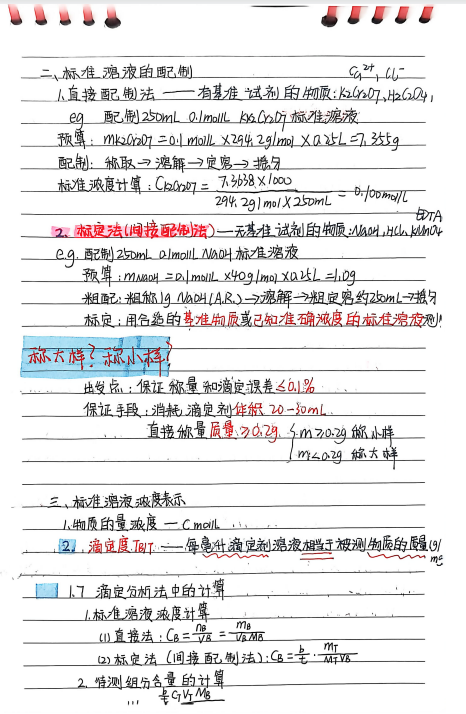 二、标准溶液的配制
Ca²⁺, Cl⁻
1.直接配制法 —— 有基准试剂的物质:K2Cr2O7, H2C2O4,
eg 配制250mL 0.1mol/L K2Cr2O7标准溶液
预算: mK2Cr2O7=0.1mol/L×294.2g/mol×0.25L=7.355g
配制: 称取→溶解→定容→摇匀
标准浓度计算: CK2Cr2O7 = 7.3638×1000 / 294.2g/mol×250mL = 0.100mol/L
EDTA
2. 标定法(间接配制法)—无基准试剂的物质:NaOH, HCl, KMnO4
e.g. 配制250mL 0.1mol/L NaOH标准溶液
预算: mNaOH=0.1mol/L×40g/mol×0.25L=1.0g
粗配: 粗称1g NaOH(A.R.)→溶解→粗定容约250mL→摇匀
标定: 用合适的基准物质或已知准确浓度的标准溶液
称大样?称小样?
出发点: 保证称量和滴定误差≤0.1%
保证手段: 消耗滴定剂体积 20-30mL
直接称量质量≥0.2g { m≥0.2g 称小样
m<0.2g 称大样
三、标准溶液浓度表示
1.物质的量浓度 — C mol/L
2. 滴定度.TB/T —— 每毫升滴定剂溶液相当于被测物质的质量(g/
mg
1.7 滴定分析法中的计算
1.标准溶液浓度计算
(1) 直接法: CB = nB/VB = mB/VBMB
(2) 标定法 (间接配制法): CB = b/t · mT/MTVB
2. 待测组分含量的计算
b/t CTVTMB